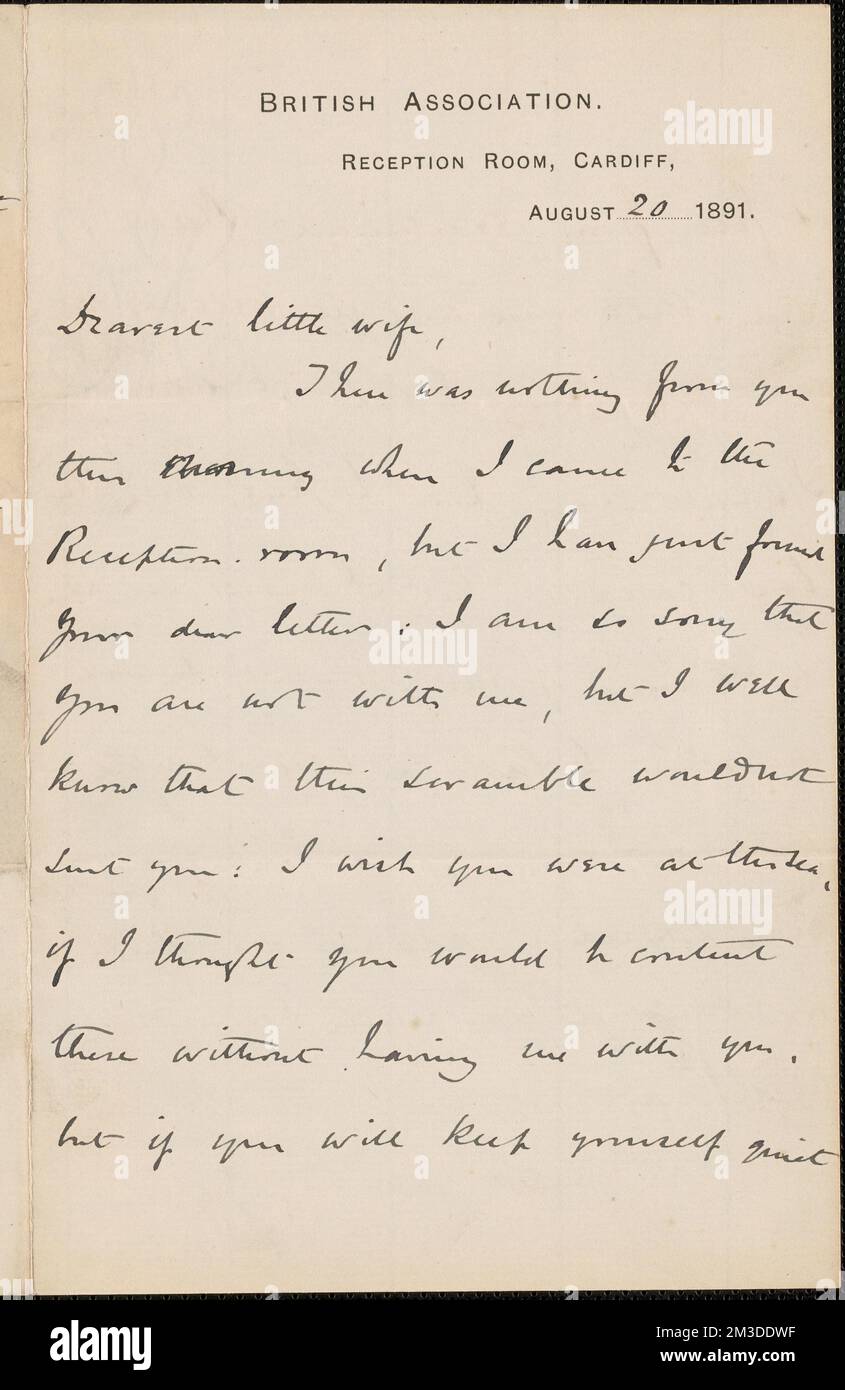 BRITISH ASSOCIATION.
RECEPTION ROOM, CARDIFF,
AUGUST 20 1891.
Dearest little wife,
There was nothing from you
this morning when I came to the
Reception-room, but I have just found
your dear letter: I am so sorry that
you are not with me, but I well
know that this scramble would not
suit you: I wish you were at the sea,
if I thought you would be content
there without having me with you.
but if you will keep yourself quiet
alamy
Image ID: 2M3DDWF
www.alamy.com